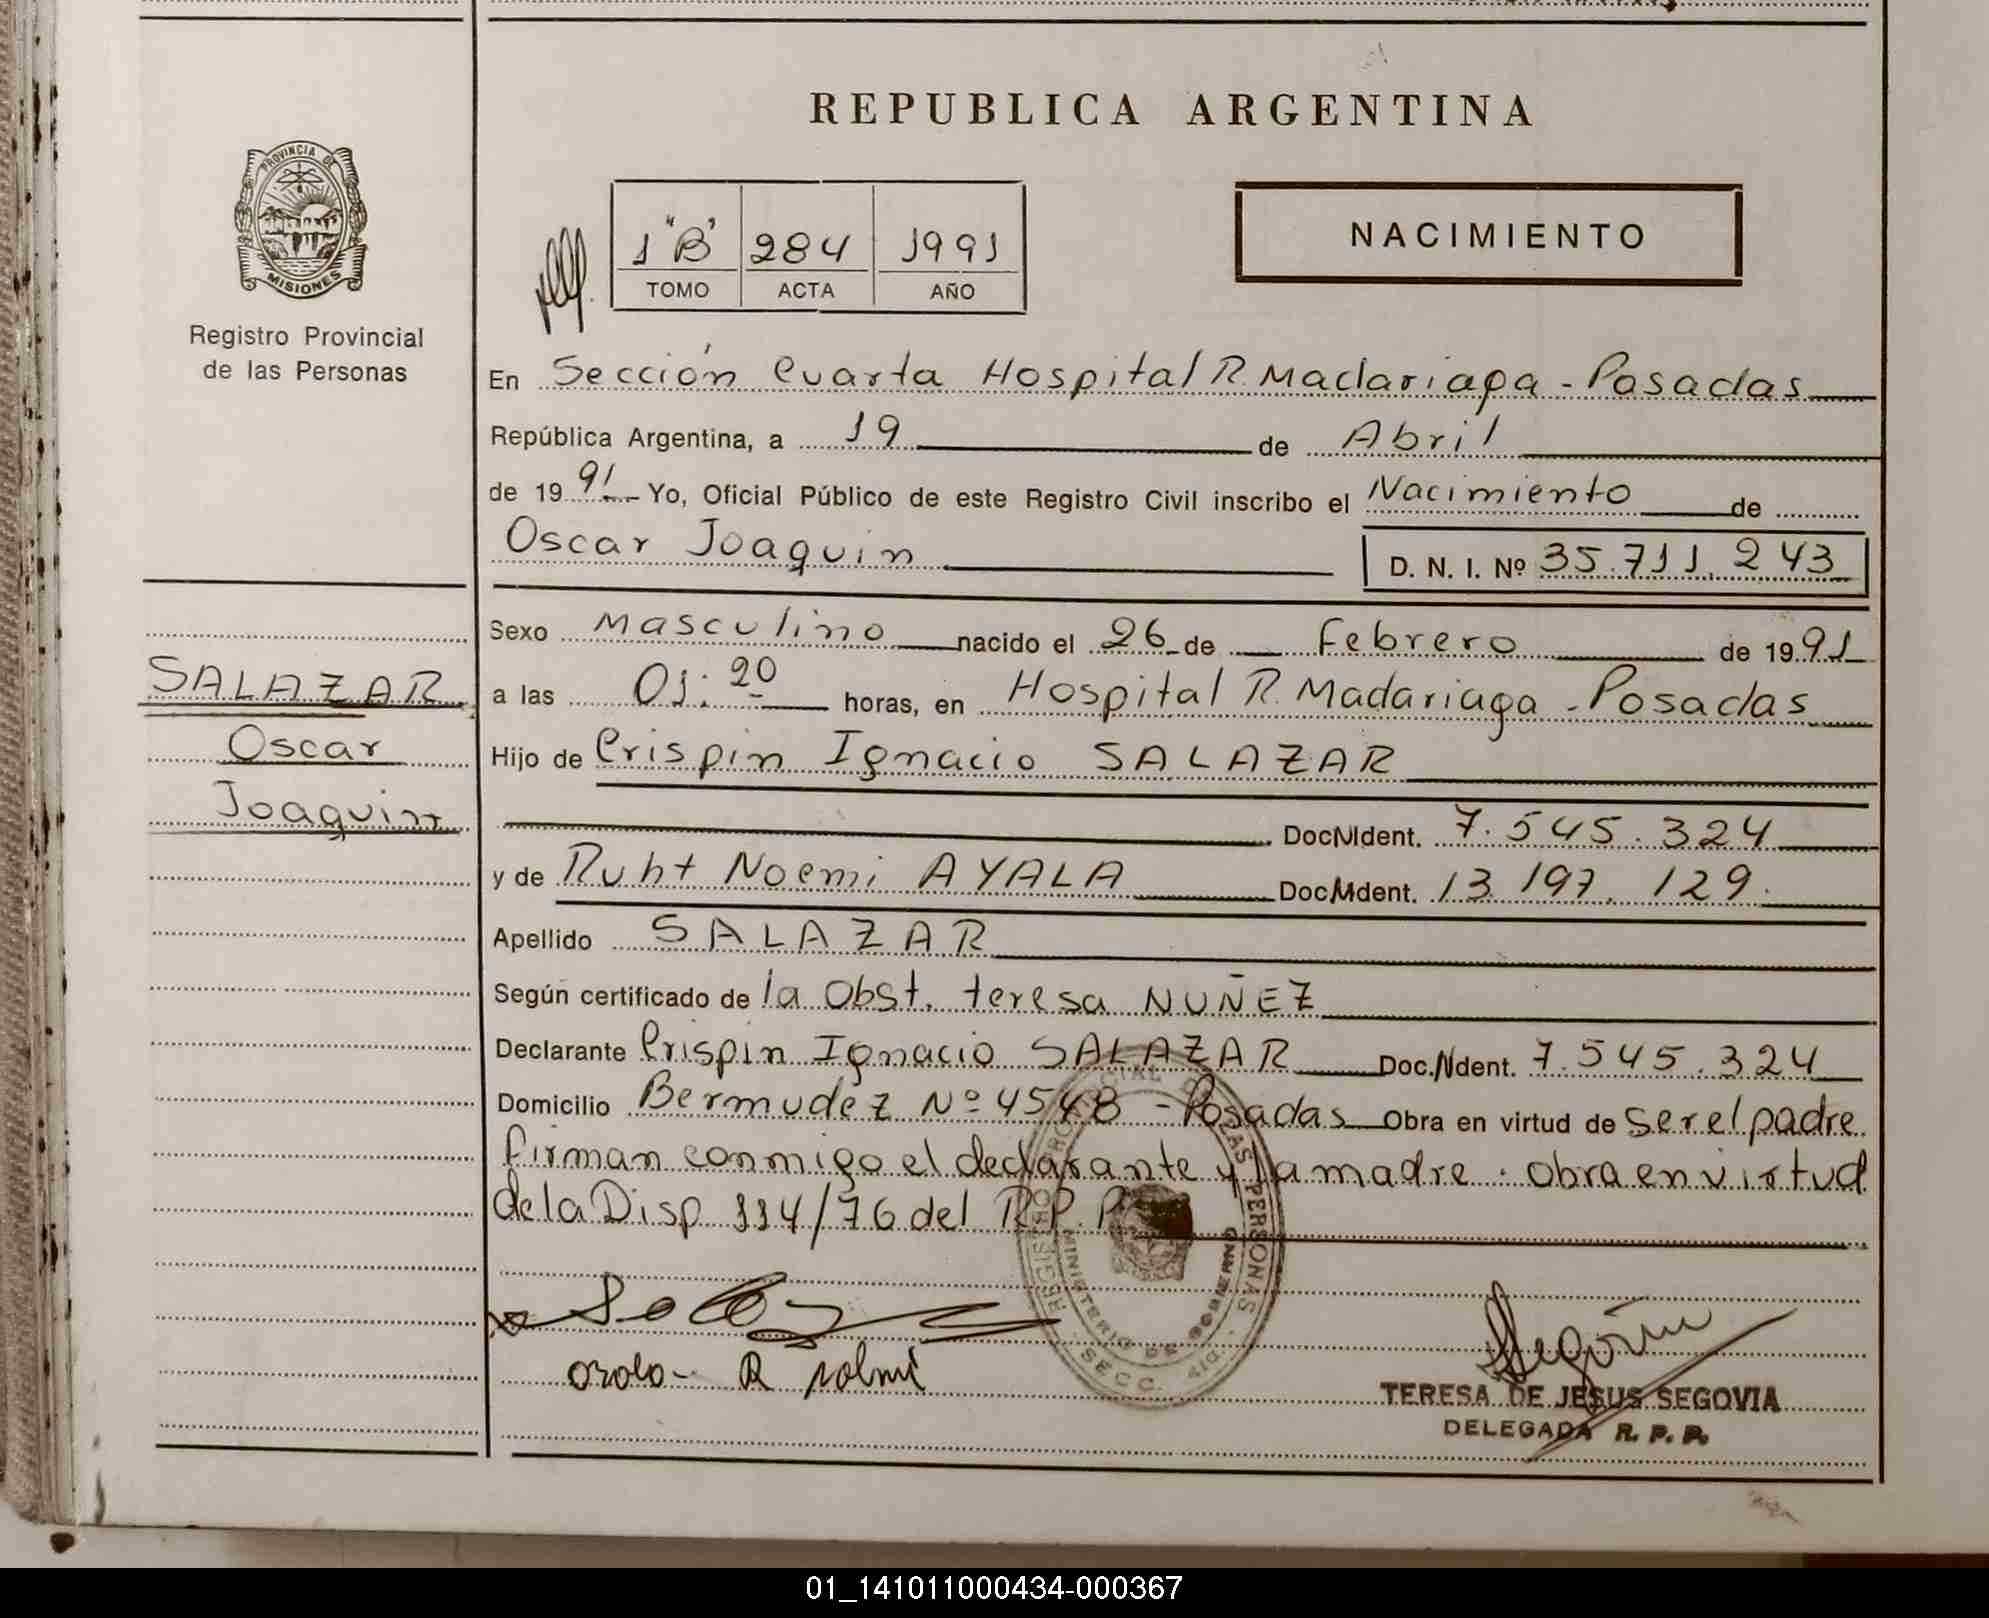 REPUBLICA ARGENTINA
PROVINCIA DE
MISIONES
Registro Provincial
de las Personas
1 "B" 284 1991
TOMO ACTA AÑO
NACIMIENTO
En Sección Cuarta Hospital R. Madariaga - Posadas
República Argentina, a 19 de Abril
de 1991 Yo, Oficial Público de este Registro Civil inscribo el Nacimiento de
Oscar Joaquin D. N. I. Nº 35.711.243
SALAZAR
Oscar
Joaquin
Sexo Masculino nacido el 26 de Febrero de 1991
a las 01:20 horas, en Hospital R. Madariaga - Posadas
Hijo de Crispin Ignacio SALAZAR
Doc. Ident. 7.545.324
y de Ruht Noemi AYALA Doc. Ident. 13.197.129.
Apellido SALAZAR
Según certificado de la Obst. teresa NUÑEZ
Declarante Crispin Ignacio SALAZAR Doc. Ident. 7.545.324
Domicilio Bermudez Nº 4548 - Posadas Obra en virtud de ser el padre
firman conmigo el declarante y la madre. obra en virtud
de la Disp 114/76 del R.P.P.
REGISTRO PROVINCIAL DE LAS PERSONAS
MINISTERIO DE GOBIERNO
SECC. 4ta.
TERESA DE JESUS SEGOVIA
DELEGADA R. P. P.
01_141011000434-000367